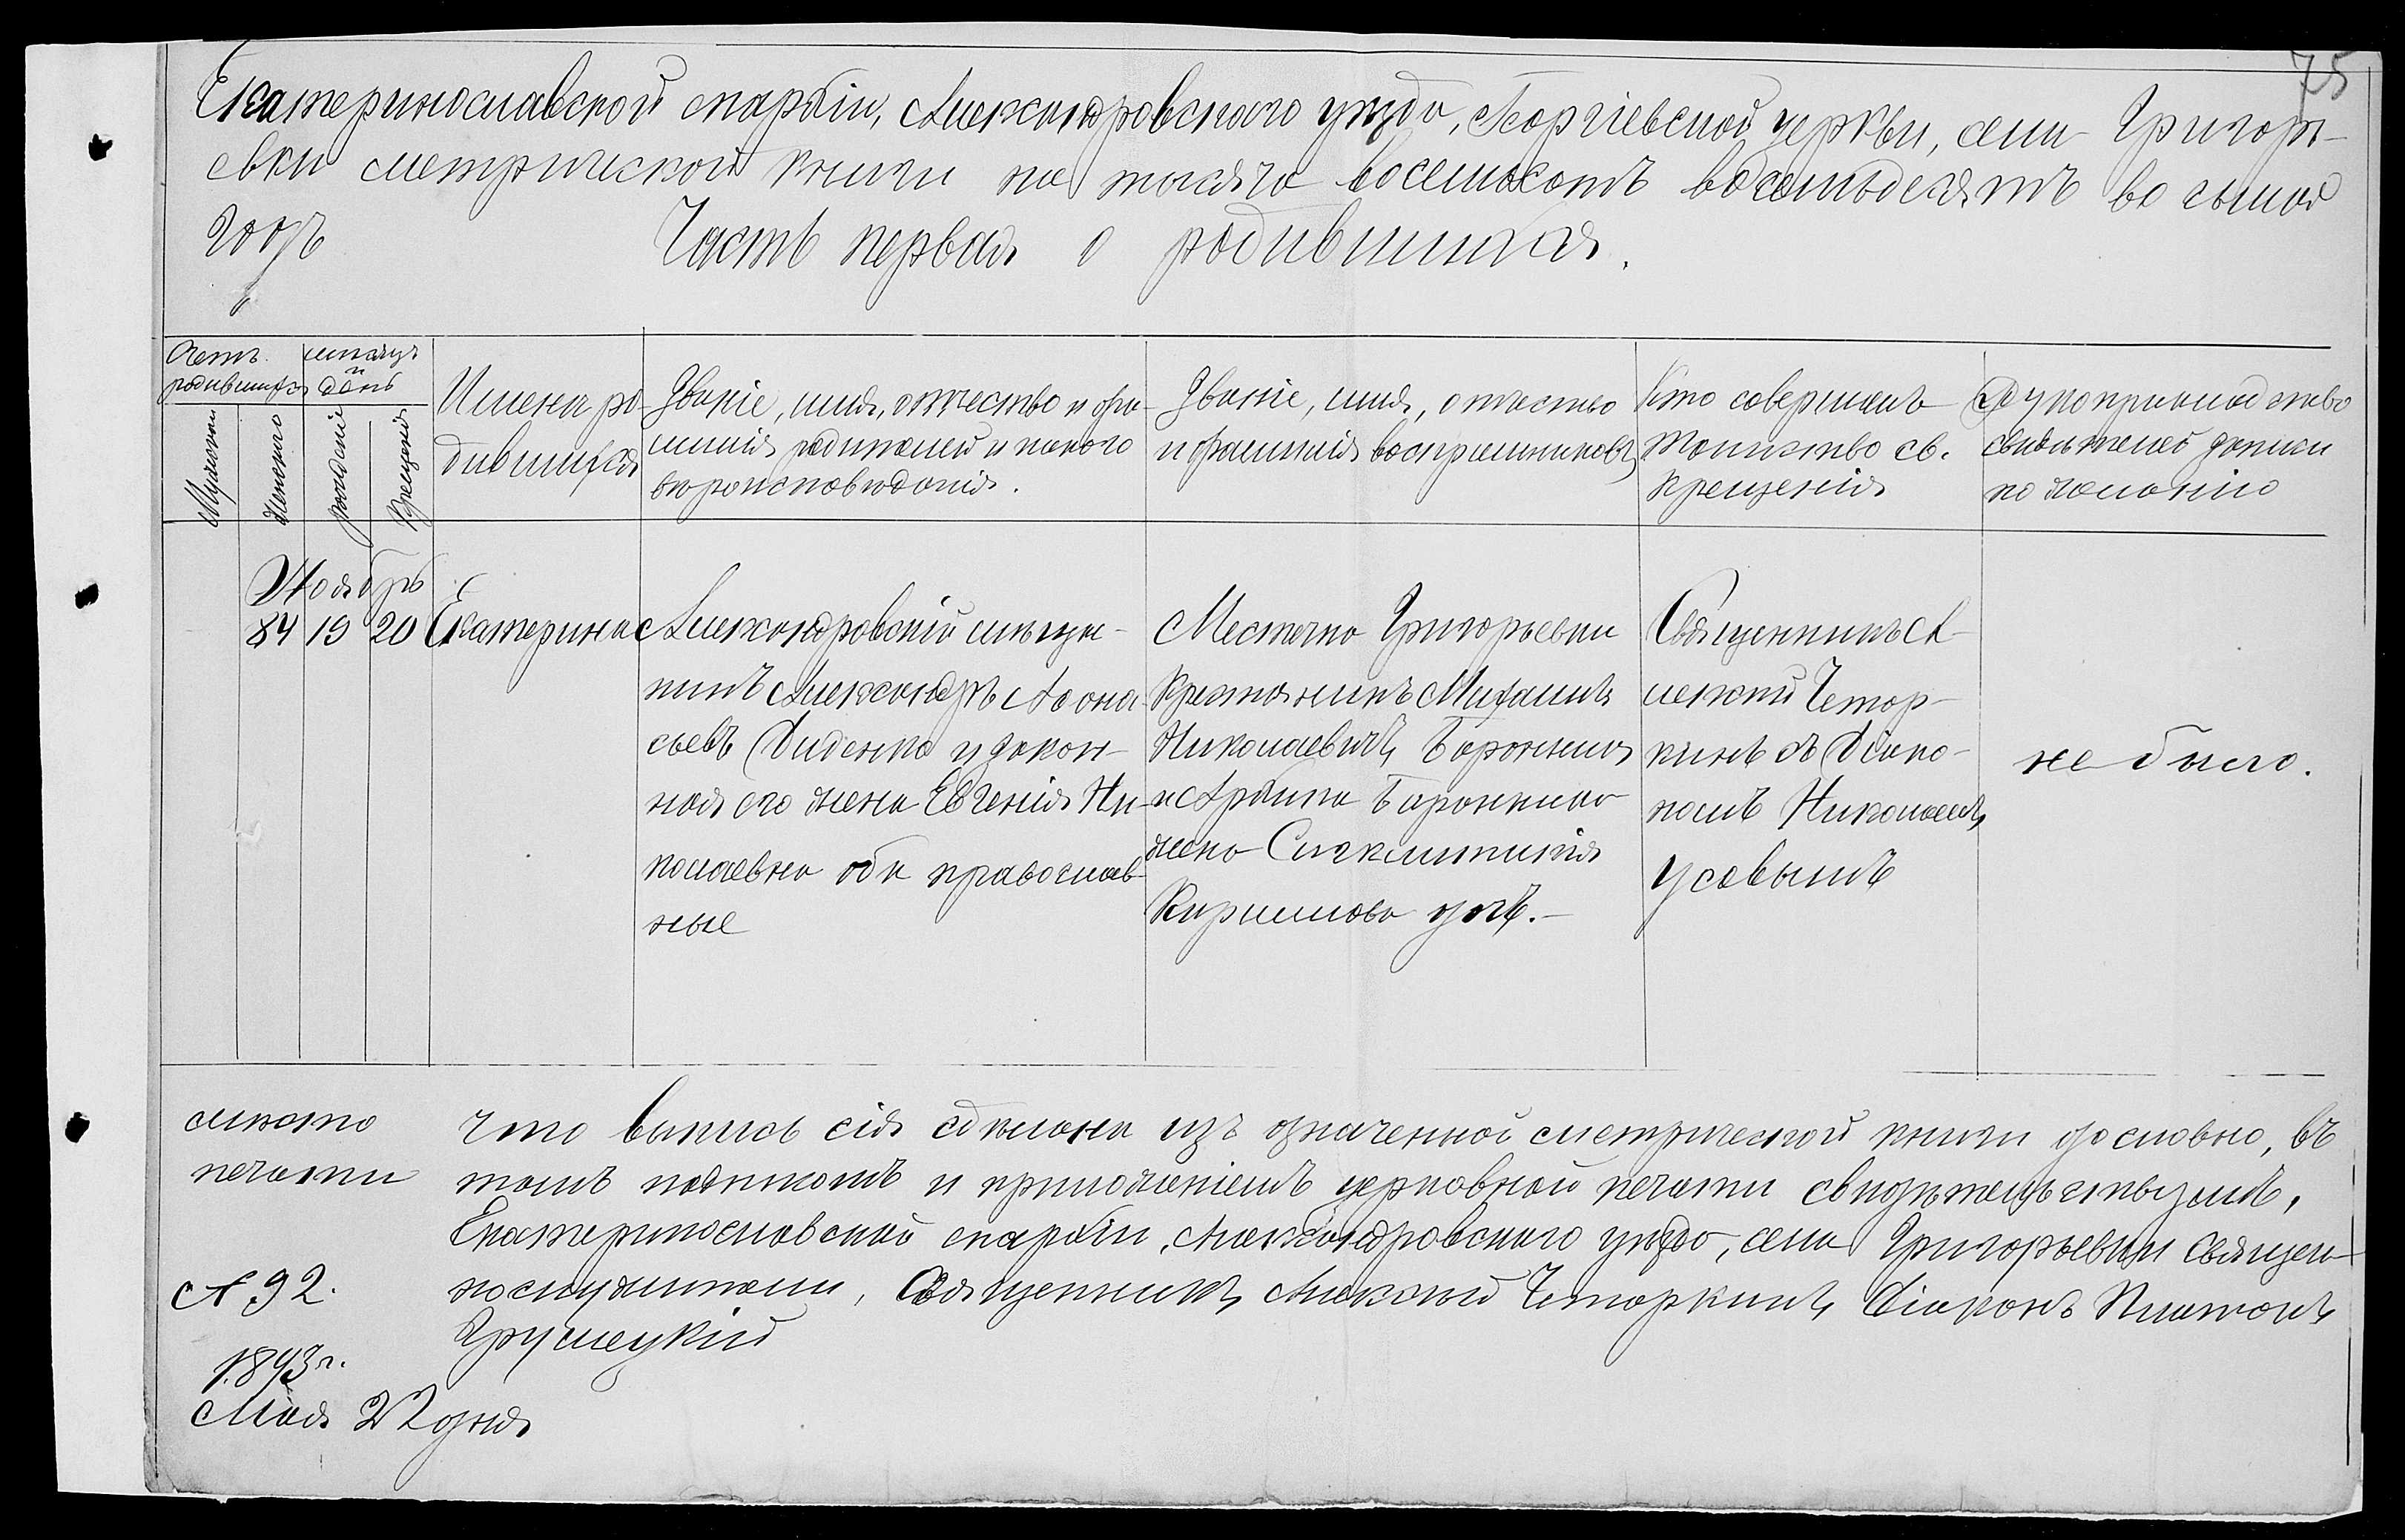 75
Екатеринославской епархіи, Александровскаго уѣзда, Георгіевской церкви, села Григорь-
евки метрической книги на тысяча восемьсотъ восемьдесятъ восьмой
годъ Часть первая о родившихся.
Счетъ родившихся
мѣсяцъ и день
Мужского
Женского
рожденія
Крещенія
Имена ро-
дившихся
Званіе, имя, отчество и фа-
милія родителей и какого
вѣроисповѣданія.
Званіе, имя, отчество
и фамилія воспріемниковъ
Кто совершалъ
таинство св.
крещенія
Рукоприкладство
свидѣтелей записи
по желанію
Ноябрь
84 19 20 Екатерина
Александровскій мѣща-
нинъ Александръ Афона-
сьевъ Диденко и закон-
ная его жена Евгенія Ни-
колаевна оба православ-
ные
Местечка Григорьевки
Крестьянинъ Михаилъ
Николаевичъ
и
жена
Кирилова дочь.-
Священникъ А-
лексѣй Четор-
кинъ съ Діако-
номъ Николаемъ
Усовымъ
не было.
мѣсто
печати
Что выпись сія сдѣлана изъ означенной метрической книги дословно, въ
томъ подписомъ и приложеніемъ церковной печати свидѣтельствуемъ,
Екатеринославской епархіи, Александровскаго уѣзда, села Григорьевки Священ-
нослужители, Священникъ Алексѣй Четоркинъ, Діаконъ Платонъ
Грушецкій
№ 92.
1893г.
Мая 22 дня